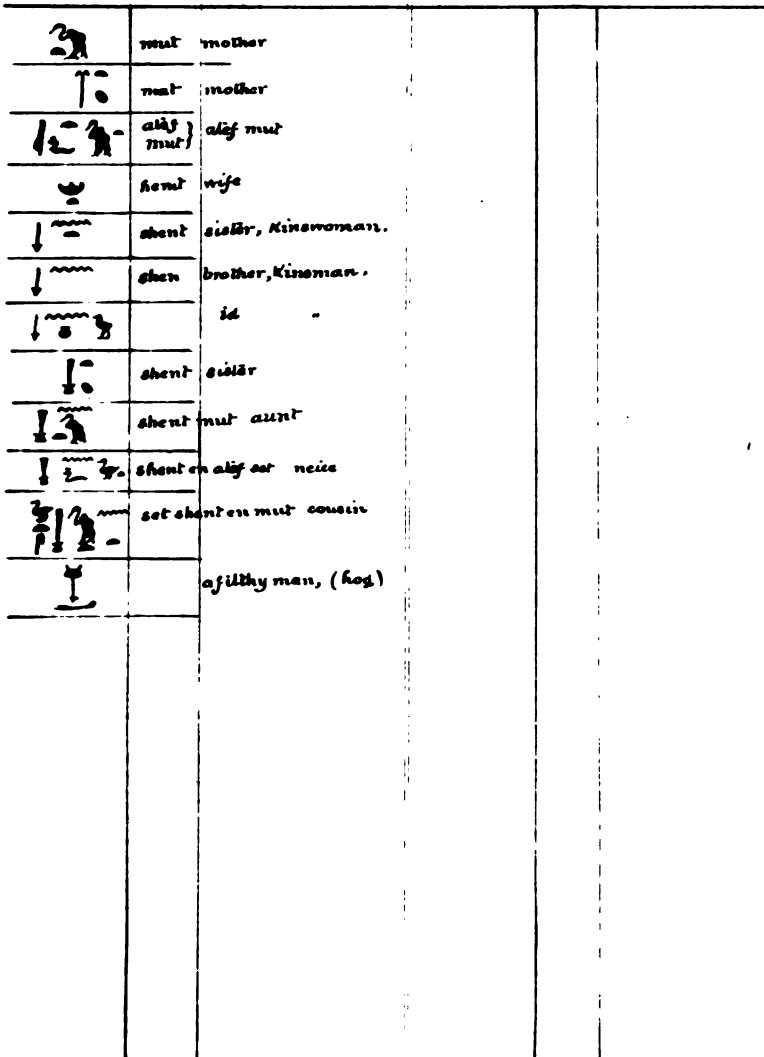 mut mother
mat mother
atef
mut} atef mut
hemt wife
shent sister, Kinswoman.
shen brother, Kinsman.
id "
shent sister
shent mut aunt
shent en atef set neice
set shent en mut cousin
a filthy man, (hog)